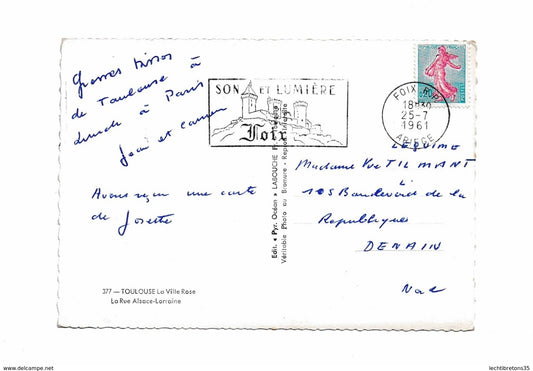 Grosses bisses
de Toulouse à
lundi à Paris
Jean et Carmen
Avons reçu une carte
de Josette
377 — TOULOUSE La Ville Rose
La Rue Alsace-Lorraine
SON ET LUMIÈRE
Foix
Edit. « Pyr. Océan » LABOUCHE
Véritable Photo au Bromure - Reproduction
FOIX R.P.
18H30
25-7
1961
ARIEGE
Madame Vve TILMANT
105 Boulevard de la
République
DENAIN
Nord
lechtibretons35